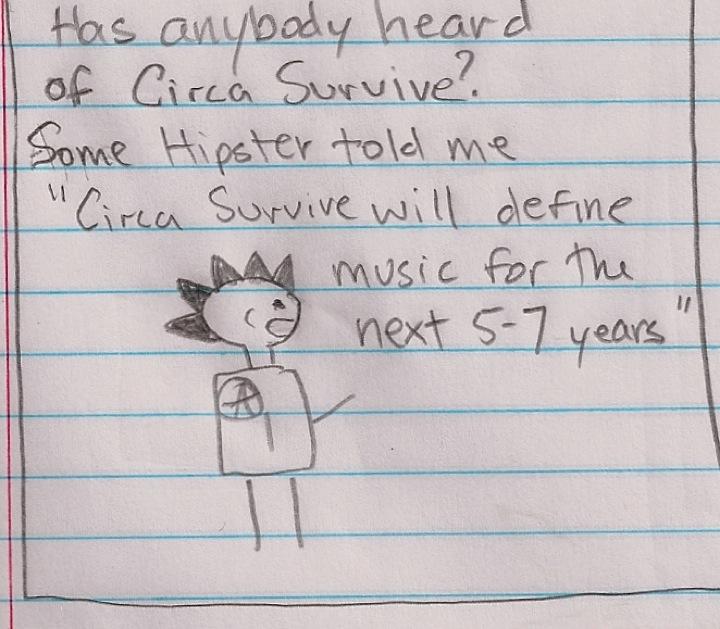 Has anybody heard
of Circa Survive?
Some Hipster told me
"Circa Survive will define
music for the
next 5-7 years"